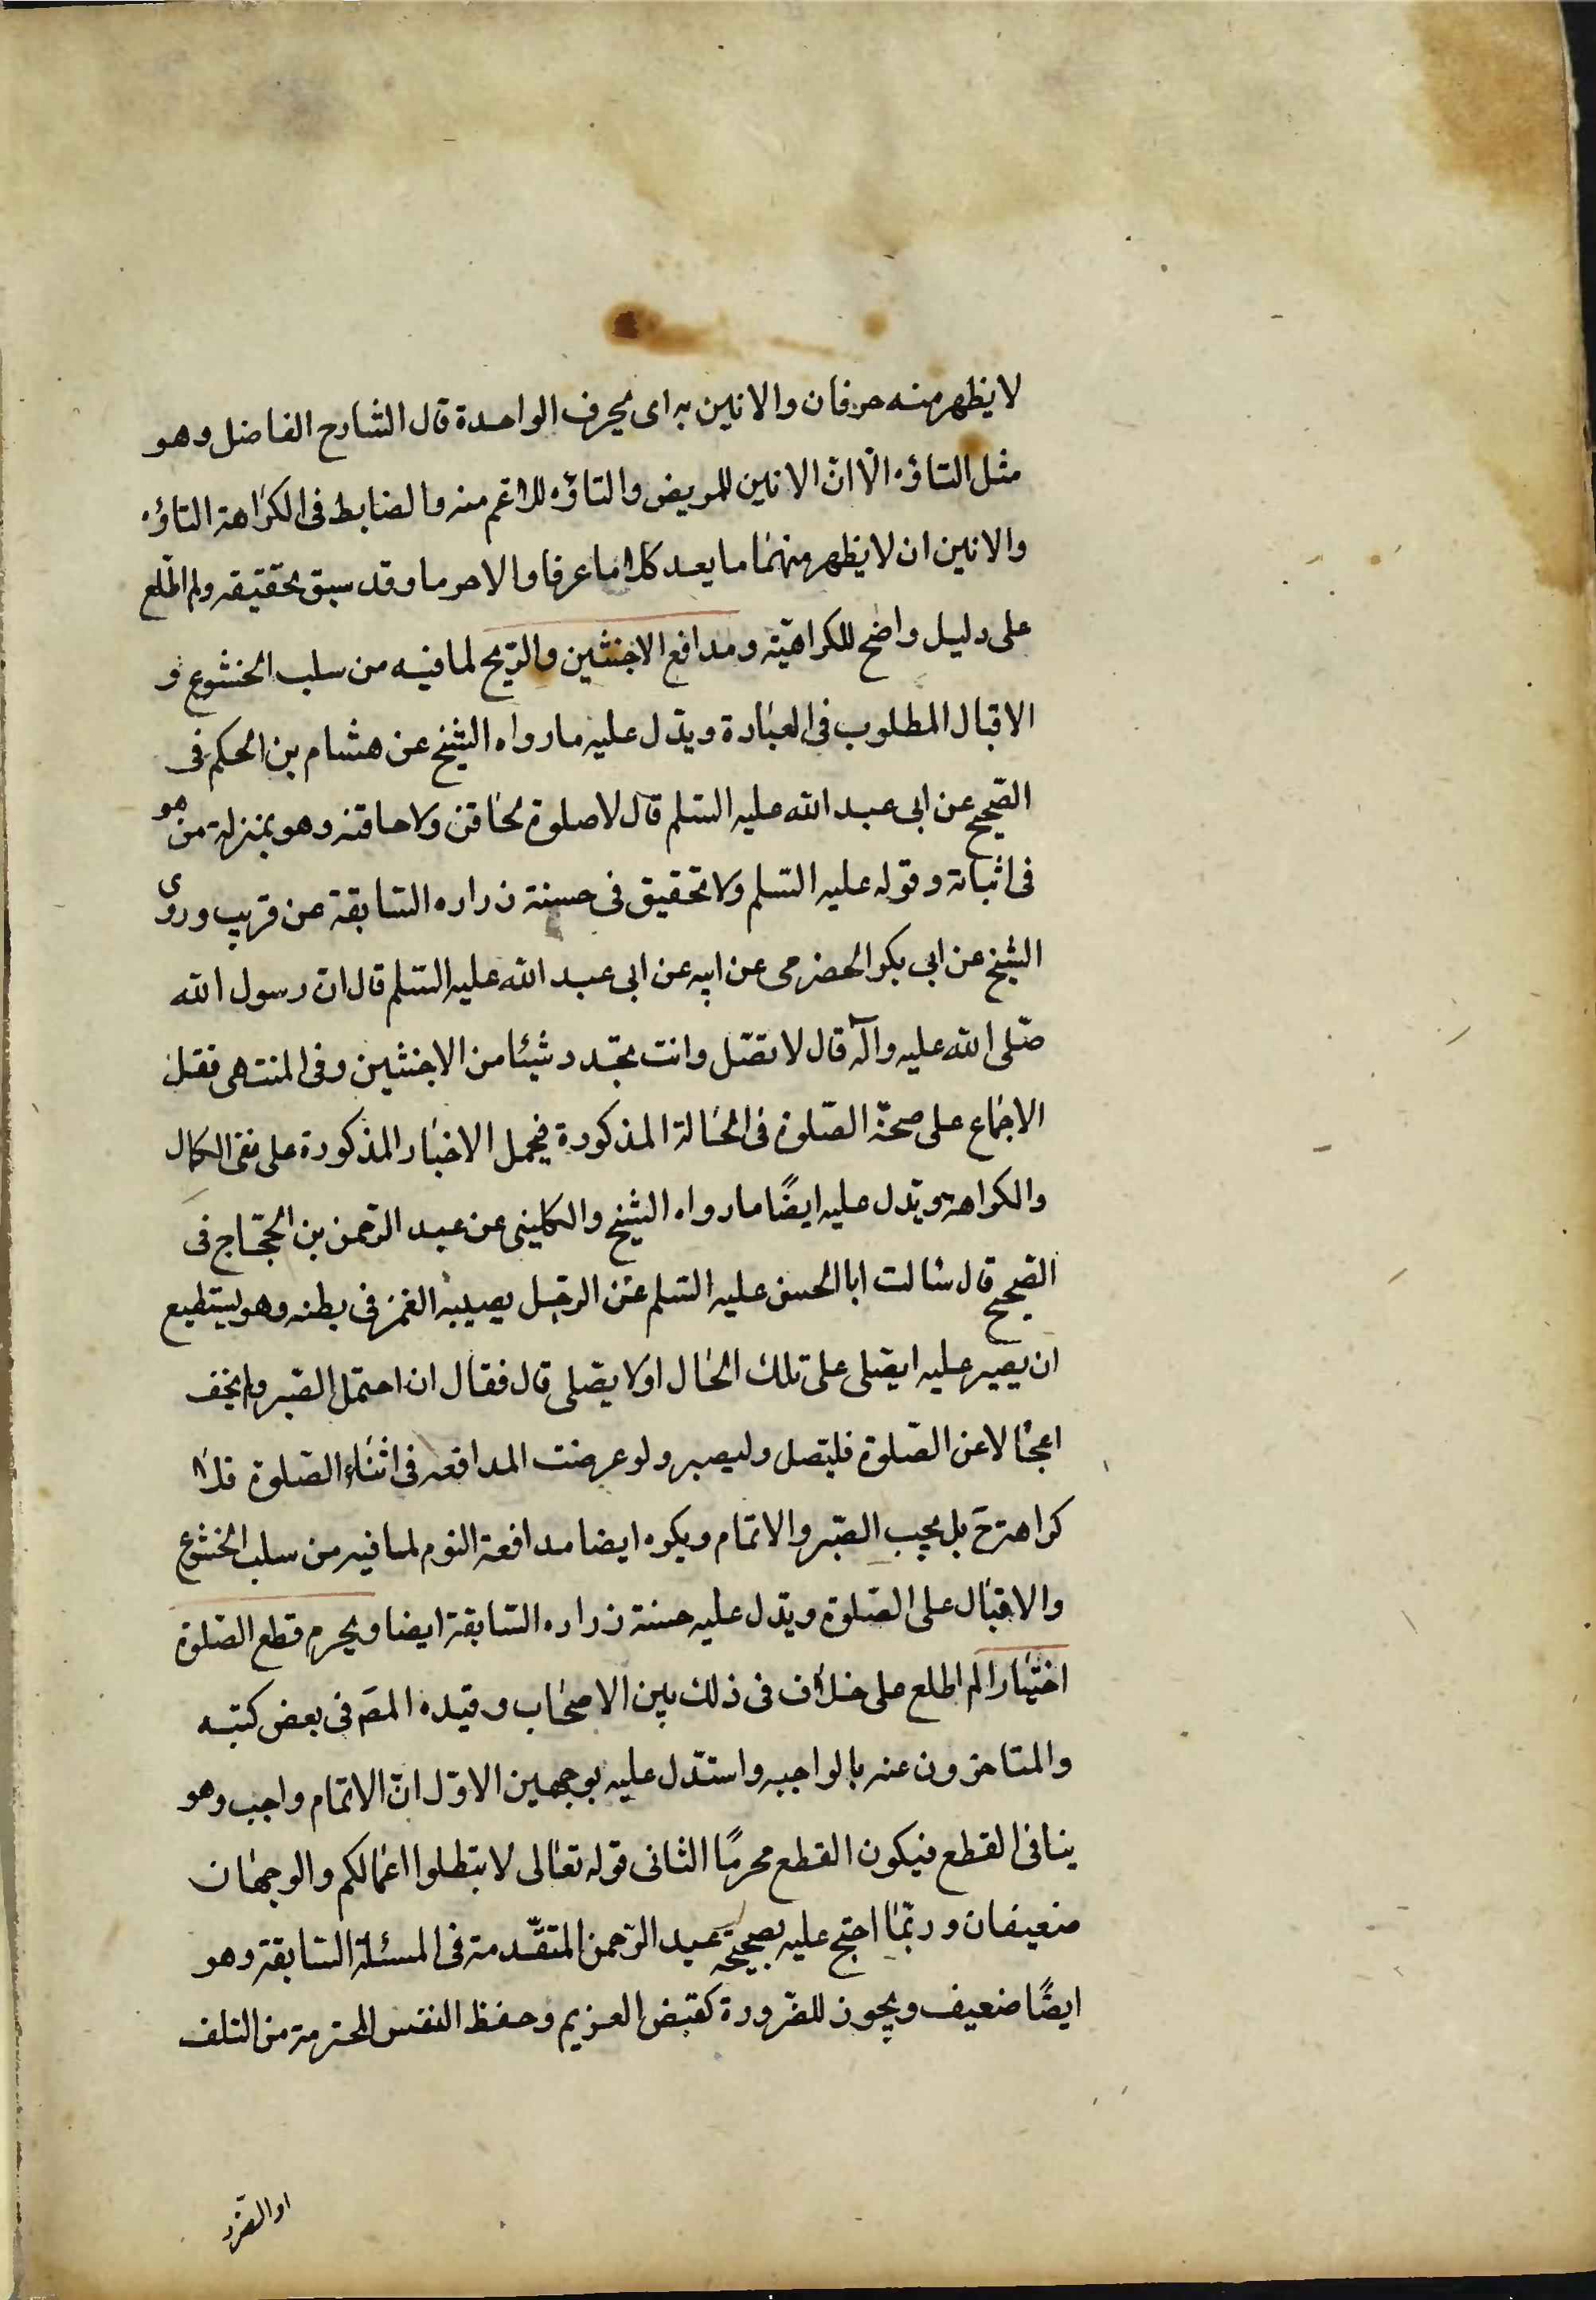 لا يظهر منه حرفان والانين به اى بحرف الواحدة قال الشارح الفاضل وهو
مثل التاوّه الّا انّ الانين للمريض والتاوّه للاعم منه والضابط فى الكراهة التاوّه
والانين ان لا يظهر منهما ما يعد كلاما عرفا والا حرما وقد سبق تحقيقه ولم اطّلع
على دليل واضح للكراهيّة ومدافع الاخبثين والرّيح لما فيه من سلب الخشوع و
الاقبال المطلوب فى العبادة ويدّل عليه ما رواه الشيخ عن هشام بن الحكم فى
الصّحيح عن ابى عبد الله عليه السّلم قال لا صلوة لحاقن ولا حاقنه وهو بمنزلة من هو
فى اثيابه وقوله عليه السّلم ولا تحقيق فى حسنة زراره السّابقة عن قريب وروى
الشيخ عن ابى بكر الحضرمى عن ابيه عن ابى عبد الله عليه السّلم قال انّ رسول الله
صّلى الله عليه وآله قال لا تصّل وانت تجّدد شيئا من الاخبثين وفى المنتهى فقل
الاجماع على صحّة الصّلوة فى الحالة المذكورة فيحمل الاخبار المذكورة على نفى الكمال
والكراهة ويدّل عليه ايضًا ما رواه الشيخ والكلينى عن عبد الرّحمن بن الحجّاج فى
الصّحيح قال سالت ابا الحسن عليه السّلم عن الرجل يصيبه الغمز فى بطنه وهو يستطيع
ان يصير عليه ايصّلى على تلك الحال او لا يصّلى قال فقال ان احتمل الصّبر ولم يخف
اعجالا عن الصّلوة فليصّل وليصبر ولو عرضت المدافعة فى اثناء الصّلوة فلا
كراهة حَ بل يجب الصّبر والاتمام ويكره ايضا مدافعة النوم لما فيه من سلب الخشوع
والاقبال على الصّلوة ويدّل عليه حسنة زراره السّابقة ايضا ويحرم قطع الصّلوة
اختيارا لم اطلع على خلاف فى ذلك بين الاصحاب وقيده المصَ فى بعض كتبه
والمتاخرون عنه بالواجبه واستدّل عليه بوجهين الاوّل انّ الاتمام واجب وهو
ينافى القطع فيكون القطع محرمًا الثانى قوله تعالى لا تبطلوا اعمالكم والوجهان
ضعيفان وربّما احتج عليه بصحيحة عبد الرّحمن المتقّدمة فى المسئلة السّابقة وهو
ايضًا ضعيف ويجوز للضّرورة كقبض الغزيم وحفظ النفس المحترمة من التلف
او الضّرر